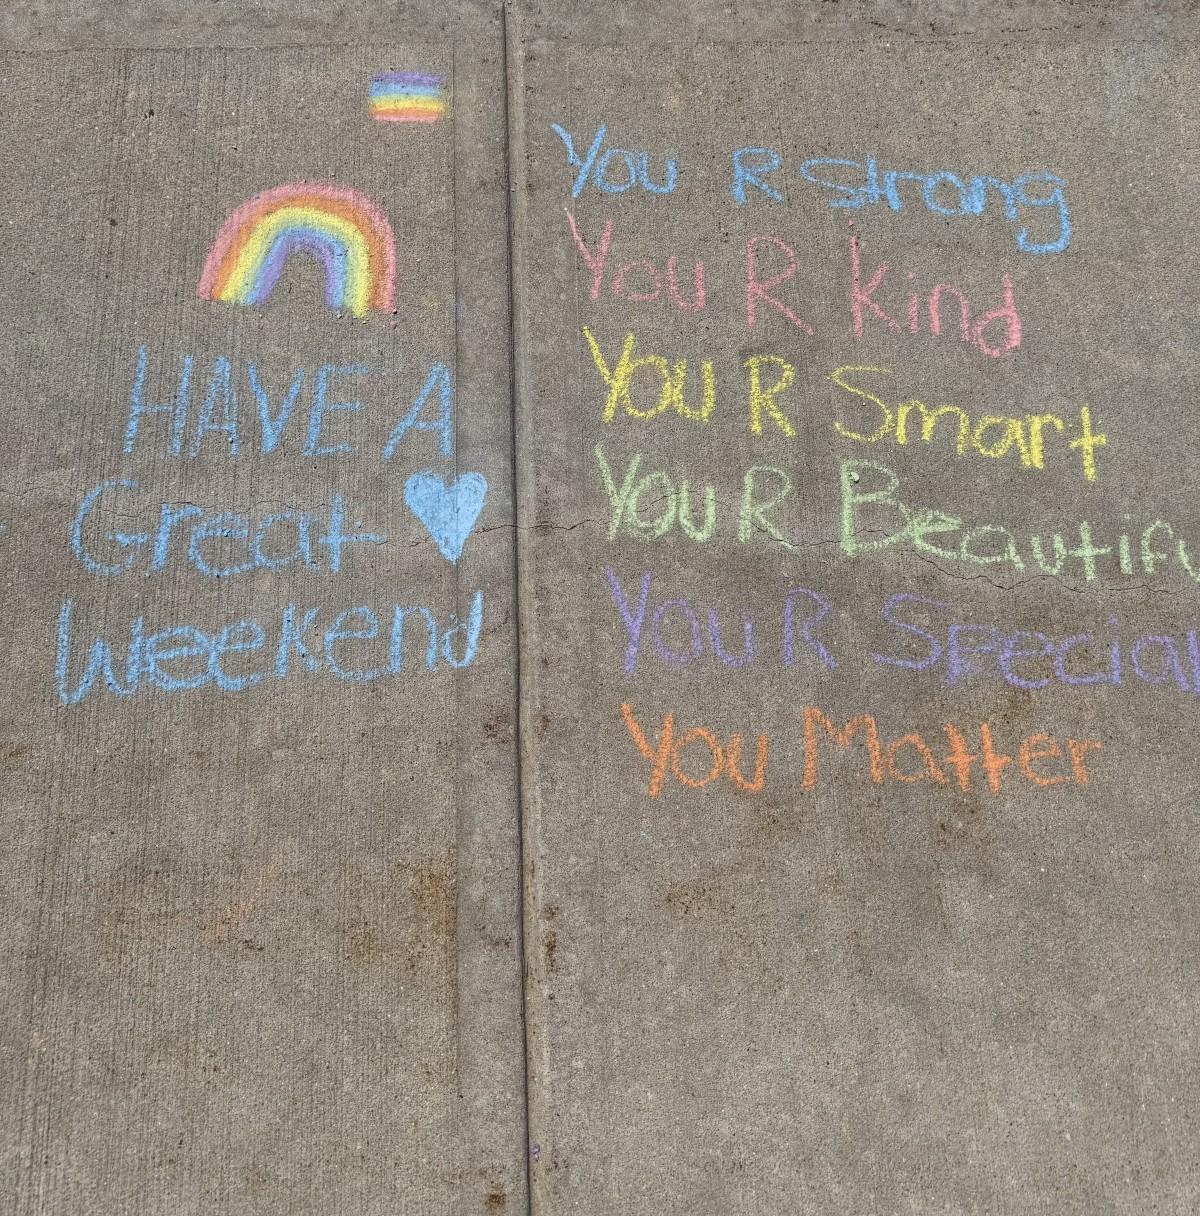 HAVE A
Great
Weekend
You R Strong
You R kind
You R Smart
You R Beautifu
You R Special
You Matter